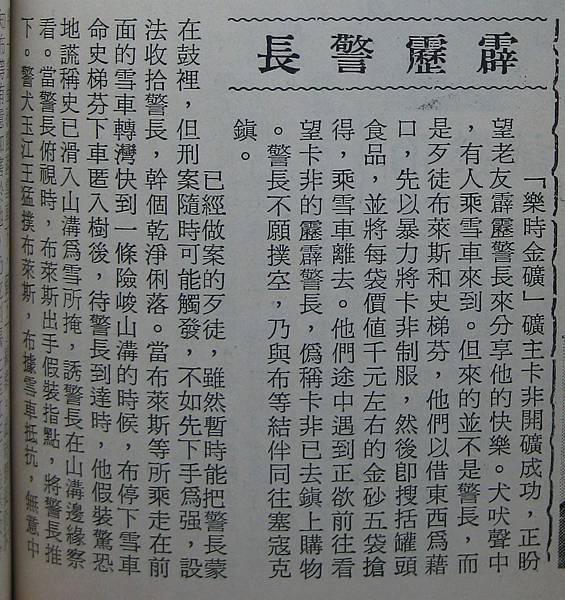 霹靂警長
「樂時金礦」礦主卡非開礦成功，正盼
望老友霹靂警長來分享他的快樂。犬吠聲中
，有人乘雪車來到。但來的並不是警長，而
是歹徒布萊斯和史梯芬，他們以借東西爲藉
口，先以暴力將卡非制服，然後卽搜括罐頭
食品，並將每袋價值千元左右的金砂五袋搶
得，乘雪車離去。他們途中遇到正欲前往看
望卡非的霹靂警長，僞稱卡非已去鎮上購物
。警長不願撲空，乃與布等結伴同往塞寇克
鎮。
已經做案的歹徒，雖然暫時能把警長蒙
在鼓裡，但刑案隨時可能觸發，不如先下手爲强，設
法收拾警長，幹個乾淨俐落。當布萊斯等所乘走在前
面的雪車轉灣快到一條險峻山溝的時候，布停下雪車
命史梯芬下車匿入樹後，待警長到達時，他假裝驚恐
地謊稱史已滑入山溝爲雪所掩，誘警長在山溝邊緣察
看。當警長俯視時，布萊斯出手假裝指點，將警長推
下。警犬玉江王猛撲布萊斯，布據雪車抵抗，無意中